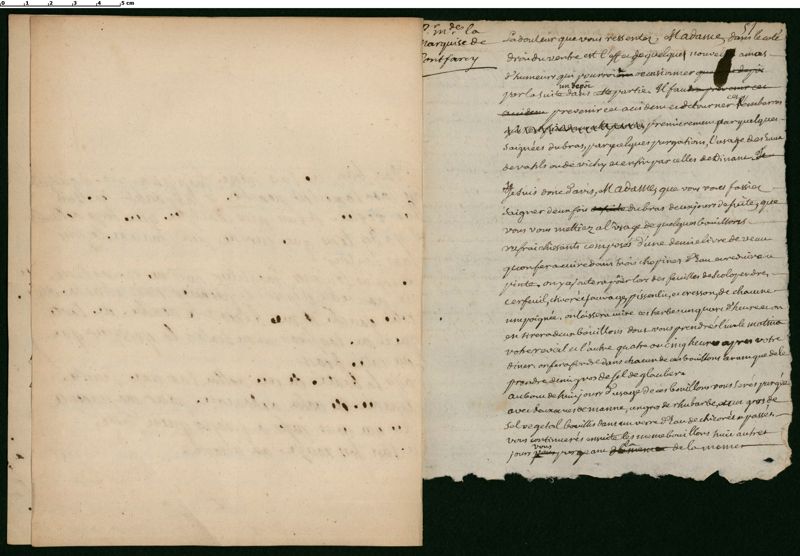 P. Mde. la
Marquise de
Pontfarcy
51
La douleur que vous ressentez, Madame, dans le coté
droit du ventre est l'effet de quelque nouvel amas
d'humeurs qui pourroient occasionner
par la suite dans cette partie un depot Il faut
prevenir cet accident et detourner cet embarras
premierement par quelques
saignées du bras, par quelques purgations, l'usage des Eaux
de vahls ou de vichy et enfin par celles de Dinant.
Je suis donc d'avis, Madame, que vous vous fassiez
saigner deux fois du bras deux jours de suite, que
vous vous mettiez a l'usage de quelques bouillons
rafraichissants composés d'une demie livre de veau
qu'on fera cuire dans trois chopines d'Eau a reduire a
pinte. on y ajoutera pour lors des feuilles de scolopendre,
cerfeuil, chicorée sauvage, pissenlit, et cresson, de chacune
une poignée, on laissera cuire ces herbes un quart d'heure et on
en tirera deux bouillons dont vous prendrez l'un le matin a
votre reveil et l'autre quatre ou cinq heures apres votre
diner. on fera fondre dans chacun de ces bouillons avant que de le
prendre demi gros de sel de glauber.
au bout de huit jours d'usage de ces bouillons vous serez purgée
avec deux onces de manne, un gros de rhubarbe, et un gros de
sel vegetal bouillis dans un verre d'Eau de chicorée a passer.
vous continuerés ensuite les memes bouillons huit autres
jours vous purgeant de la meme